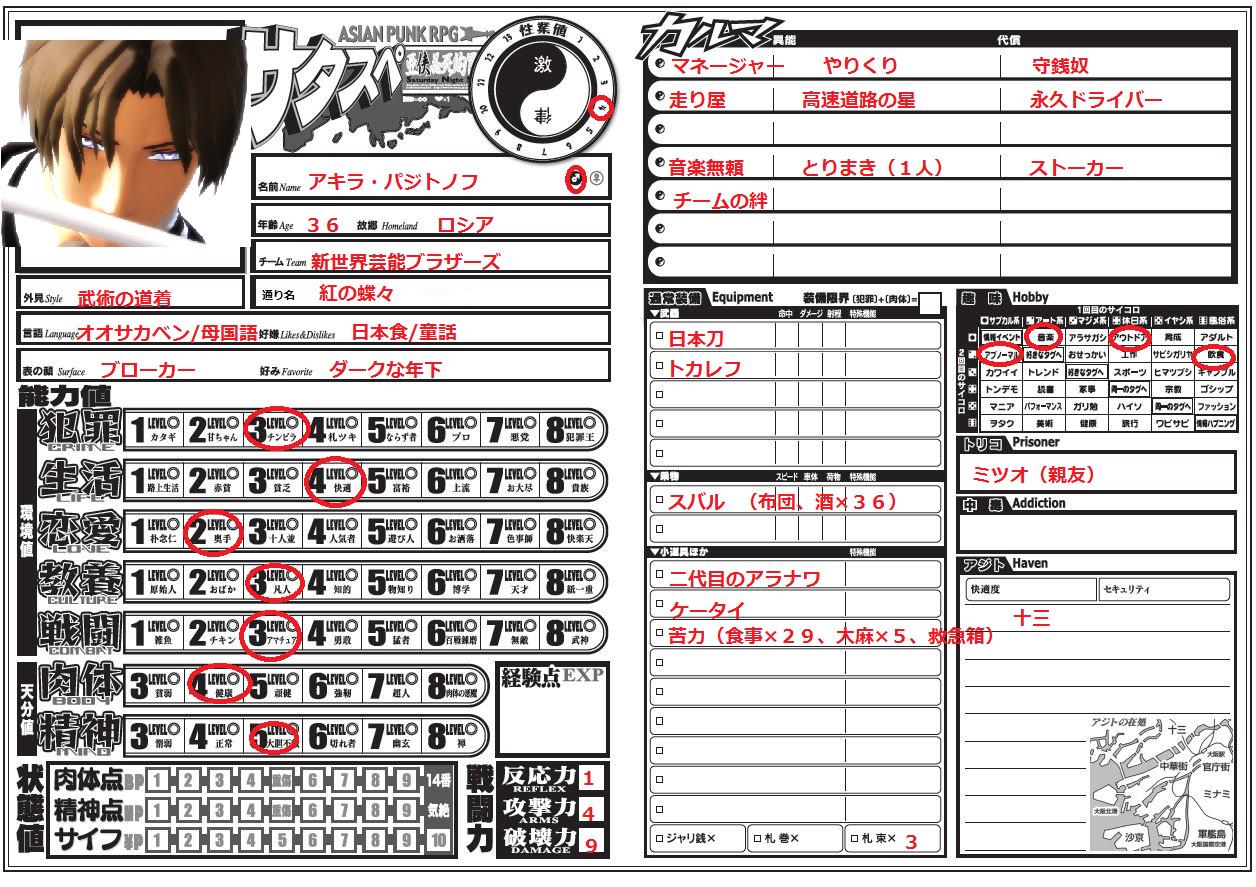 ASIAN PUNK RPG
サタスペ
Saturday Night
性業値
1 2 3 4 5 6 7 8 9 10 11 12 13
激
律
名前 Name アキラ・パジトノフ
年齢 Age 36 故郷 Homeland ロシア
チーム Team 新世界芸能ブラザーズ
外見 Style 武術の道着
通り名 紅の蝶々
言語 Language オオサカベン/母国語 好嫌 Likes&Dislikes 日本食/童話
表の顔 Surface ブローカー 好み Favorite ダークな年下
能力値
環境値
犯罪 CRIME 1 LEVEL カタギ 2 LEVEL 甘ちゃん 3 LEVEL チンピラ 4 LEVEL 札ツキ 5 LEVEL ならず者 6 LEVEL プロ 7 LEVEL 悪党 8 LEVEL 犯罪王
生活 LIFE 1 LEVEL 路上生活 2 LEVEL 赤貧 3 LEVEL 貧乏 4 LEVEL 快適 5 LEVEL 富裕 6 LEVEL 上流 7 LEVEL お大尽 8 LEVEL 貴族
恋愛 LOVE 1 LEVEL 朴念仁 2 LEVEL 奥手 3 LEVEL 十人並 4 LEVEL 人気者 5 LEVEL 遊び人 6 LEVEL お洒落 7 LEVEL 色事師 8 LEVEL 快楽天
教養 CULTURE 1 LEVEL 原始人 2 LEVEL おばか 3 LEVEL 凡人 4 LEVEL 知的 5 LEVEL 物知り 6 LEVEL 博学 7 LEVEL 天才 8 LEVEL 紙一重
戦闘 COMBAT 1 LEVEL 雑魚 2 LEVEL チキン 3 LEVEL アマチュア 4 LEVEL 勇敢 5 LEVEL 猛者 6 LEVEL 百戦錬磨 7 LEVEL 無敵 8 LEVEL 武神
天分値
肉体 BODY 3 LEVEL 貧弱 4 LEVEL 健康 5 LEVEL 頑健 6 LEVEL 強靭 7 LEVEL 超人 8 LEVEL 肉体の悪魔
精神 MIND 3 LEVEL 惰弱 4 LEVEL 正常 5 LEVEL 大胆不 6 LEVEL 切れ者 7 LEVEL 幽玄 8 LEVEL 禅
経験点 EXP
状態値
肉体点 BP 1 2 3 4 重傷 6 7 8 9 14番
精神点 MP 1 2 3 4 重傷 6 7 8 9 気絶
サイフ ¥P 1 2 3 4 5 6 7 8 9 10
戦闘力
反応力 REFLEX 1
攻撃力 ARMS 4
破壊力 DAMAGE 9
カルマ 異能 代償
マネージャー やりくり 守銭奴
走り屋 高速道路の星 永久ドライバー
音楽無頼 とりまき（1人） ストーカー
チームの絆
通常装備 Equipment 装備限界（犯罪）+（肉体）=
▼武器 命中 ダメージ 射程 特殊機能
日本刀
トカレフ
▼乗物 スピード 車体 荷物 特殊機能
スバル （布団、酒×36）
▼小道具ほか 特殊機能
二代目のアラナワ
ケータイ
苦力（食事×29、大麻×5、救急箱）
ジャリ銭× 札巻× 札束× 3
趣味 Hobby
1回目のサイコロ
サブカル系 アート系 マジメ系 休日系 イヤシ系 風俗系
2回目のサイコロ
情報イベント 音楽 アラサガシ アウトドア 育成 アダルト
アブノーマル 好きなタグへ おせっかい 工作 サビシガリヤ 飲食
カワイイ トレンド 好きなタグへ スポーツ ヒマツブシ ギャンブル
トンデモ 読書 軍事 同一のタグへ 宗教 ゴシップ
マニア パフォーマンス ガリ勉 ハイソ 同一のタグへ ファッション
ヲタク 美術 健康 旅行 ワビサビ 情報ハプニング
トリコ Prisoner
ミツオ（親友）
中毒 Addiction
アジト Haven
快適度 セキュリティ
十三
アジトの在処
十三
大阪駅
中華街 官庁街
ミナミ
大阪北港
沙京
軍艦島
大阪国際空港